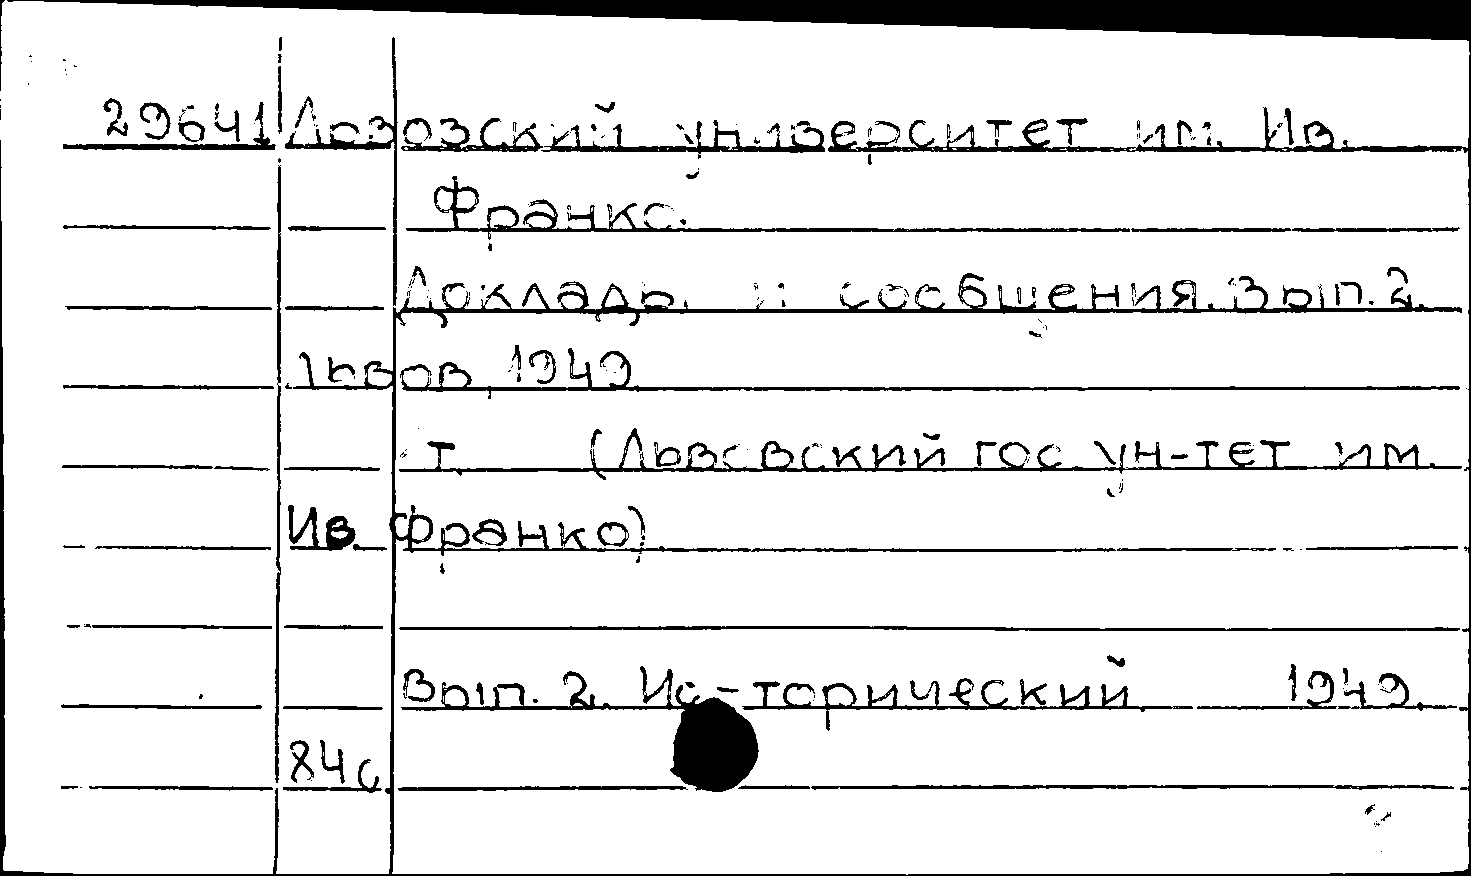 29641 Львовский университет им. Ив.
Франко.
Доклады и сообщения. Вып. 2.
Львов, 1949
т. (Львовский гос. ун-тет им.
Ив. Франко)
Вып. 2. Ис-торический. 1949.
84с.